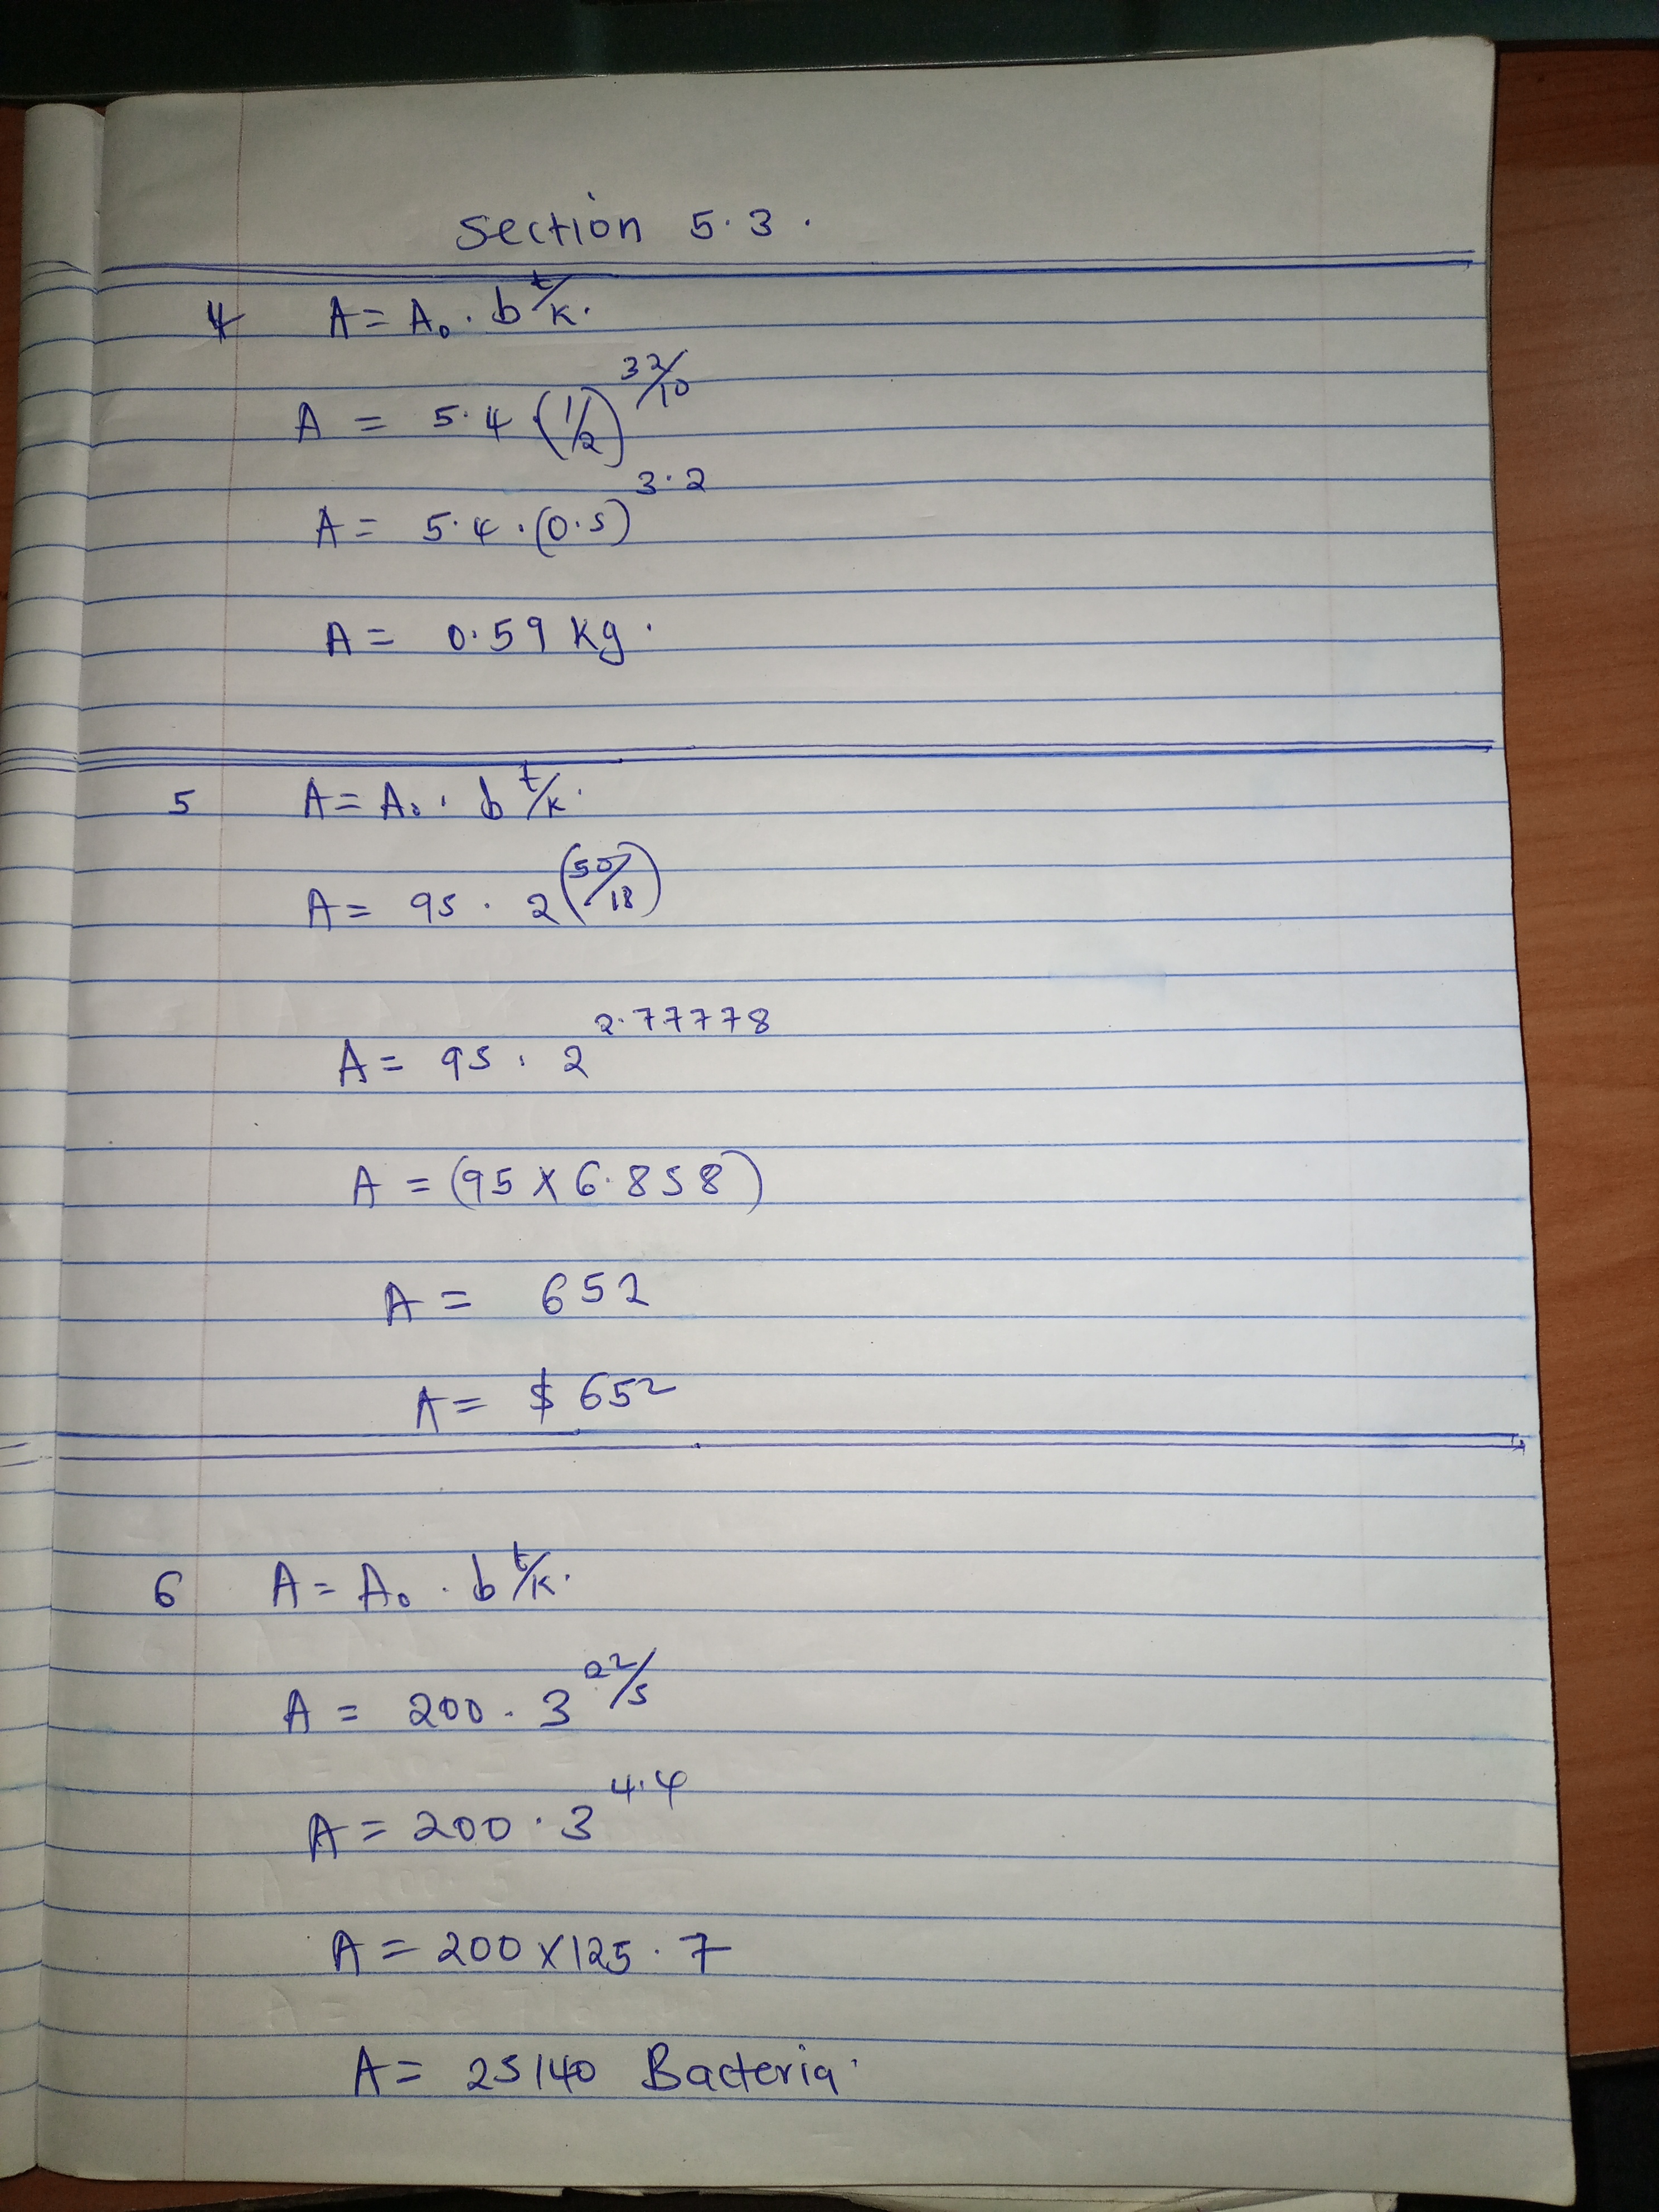 Section 5.3.
4 A = A₀ . b^t/k.
A = 5.4 (1/2)^32/10
A = 5.4 . (0.5)^3.2
A = 0.59 kg.
5 A = A₀ . b^t/k.
A = 95 . 2^(50/18)
A = 95 . 2^2.77778
A = (95 x 6.858)
A = 652
A = $ 652
6 A = A₀ . b^t/k.
A = 200 . 3^22/5
A = 200 . 3^4.4
A = 200 x 125.7
A = 25140 Bacteria.